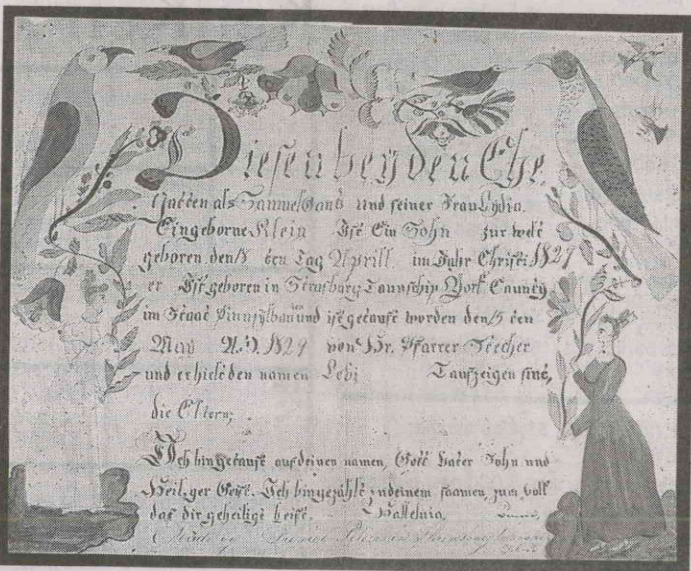 Diesen beyden Ehe
Gatten als Samuel Gans und seiner Frau Lydia
Eingeborne Klein Ist Ein Sohn zur welt
geboren den 18 ten Tag Aprill im Jahr Christi 1829
er Ist geboren in Strasburg Taunschip York Caunty
im Staat Pinnsylvanien und ist getauft worden den 15 ten
May A.D. 1829 von Hr. Pfarrer Stecher
und erhielt den namen Levi Taufzeigen sind,
die Eltern;
Ich bin getauft auf deinen namen, Gott Vater Sohn und
Heiliger Geist. Ich bin gezählt zu deinem saamen, zum volk
das dir geheiligt heist. Halleluia,
Made by Daniel